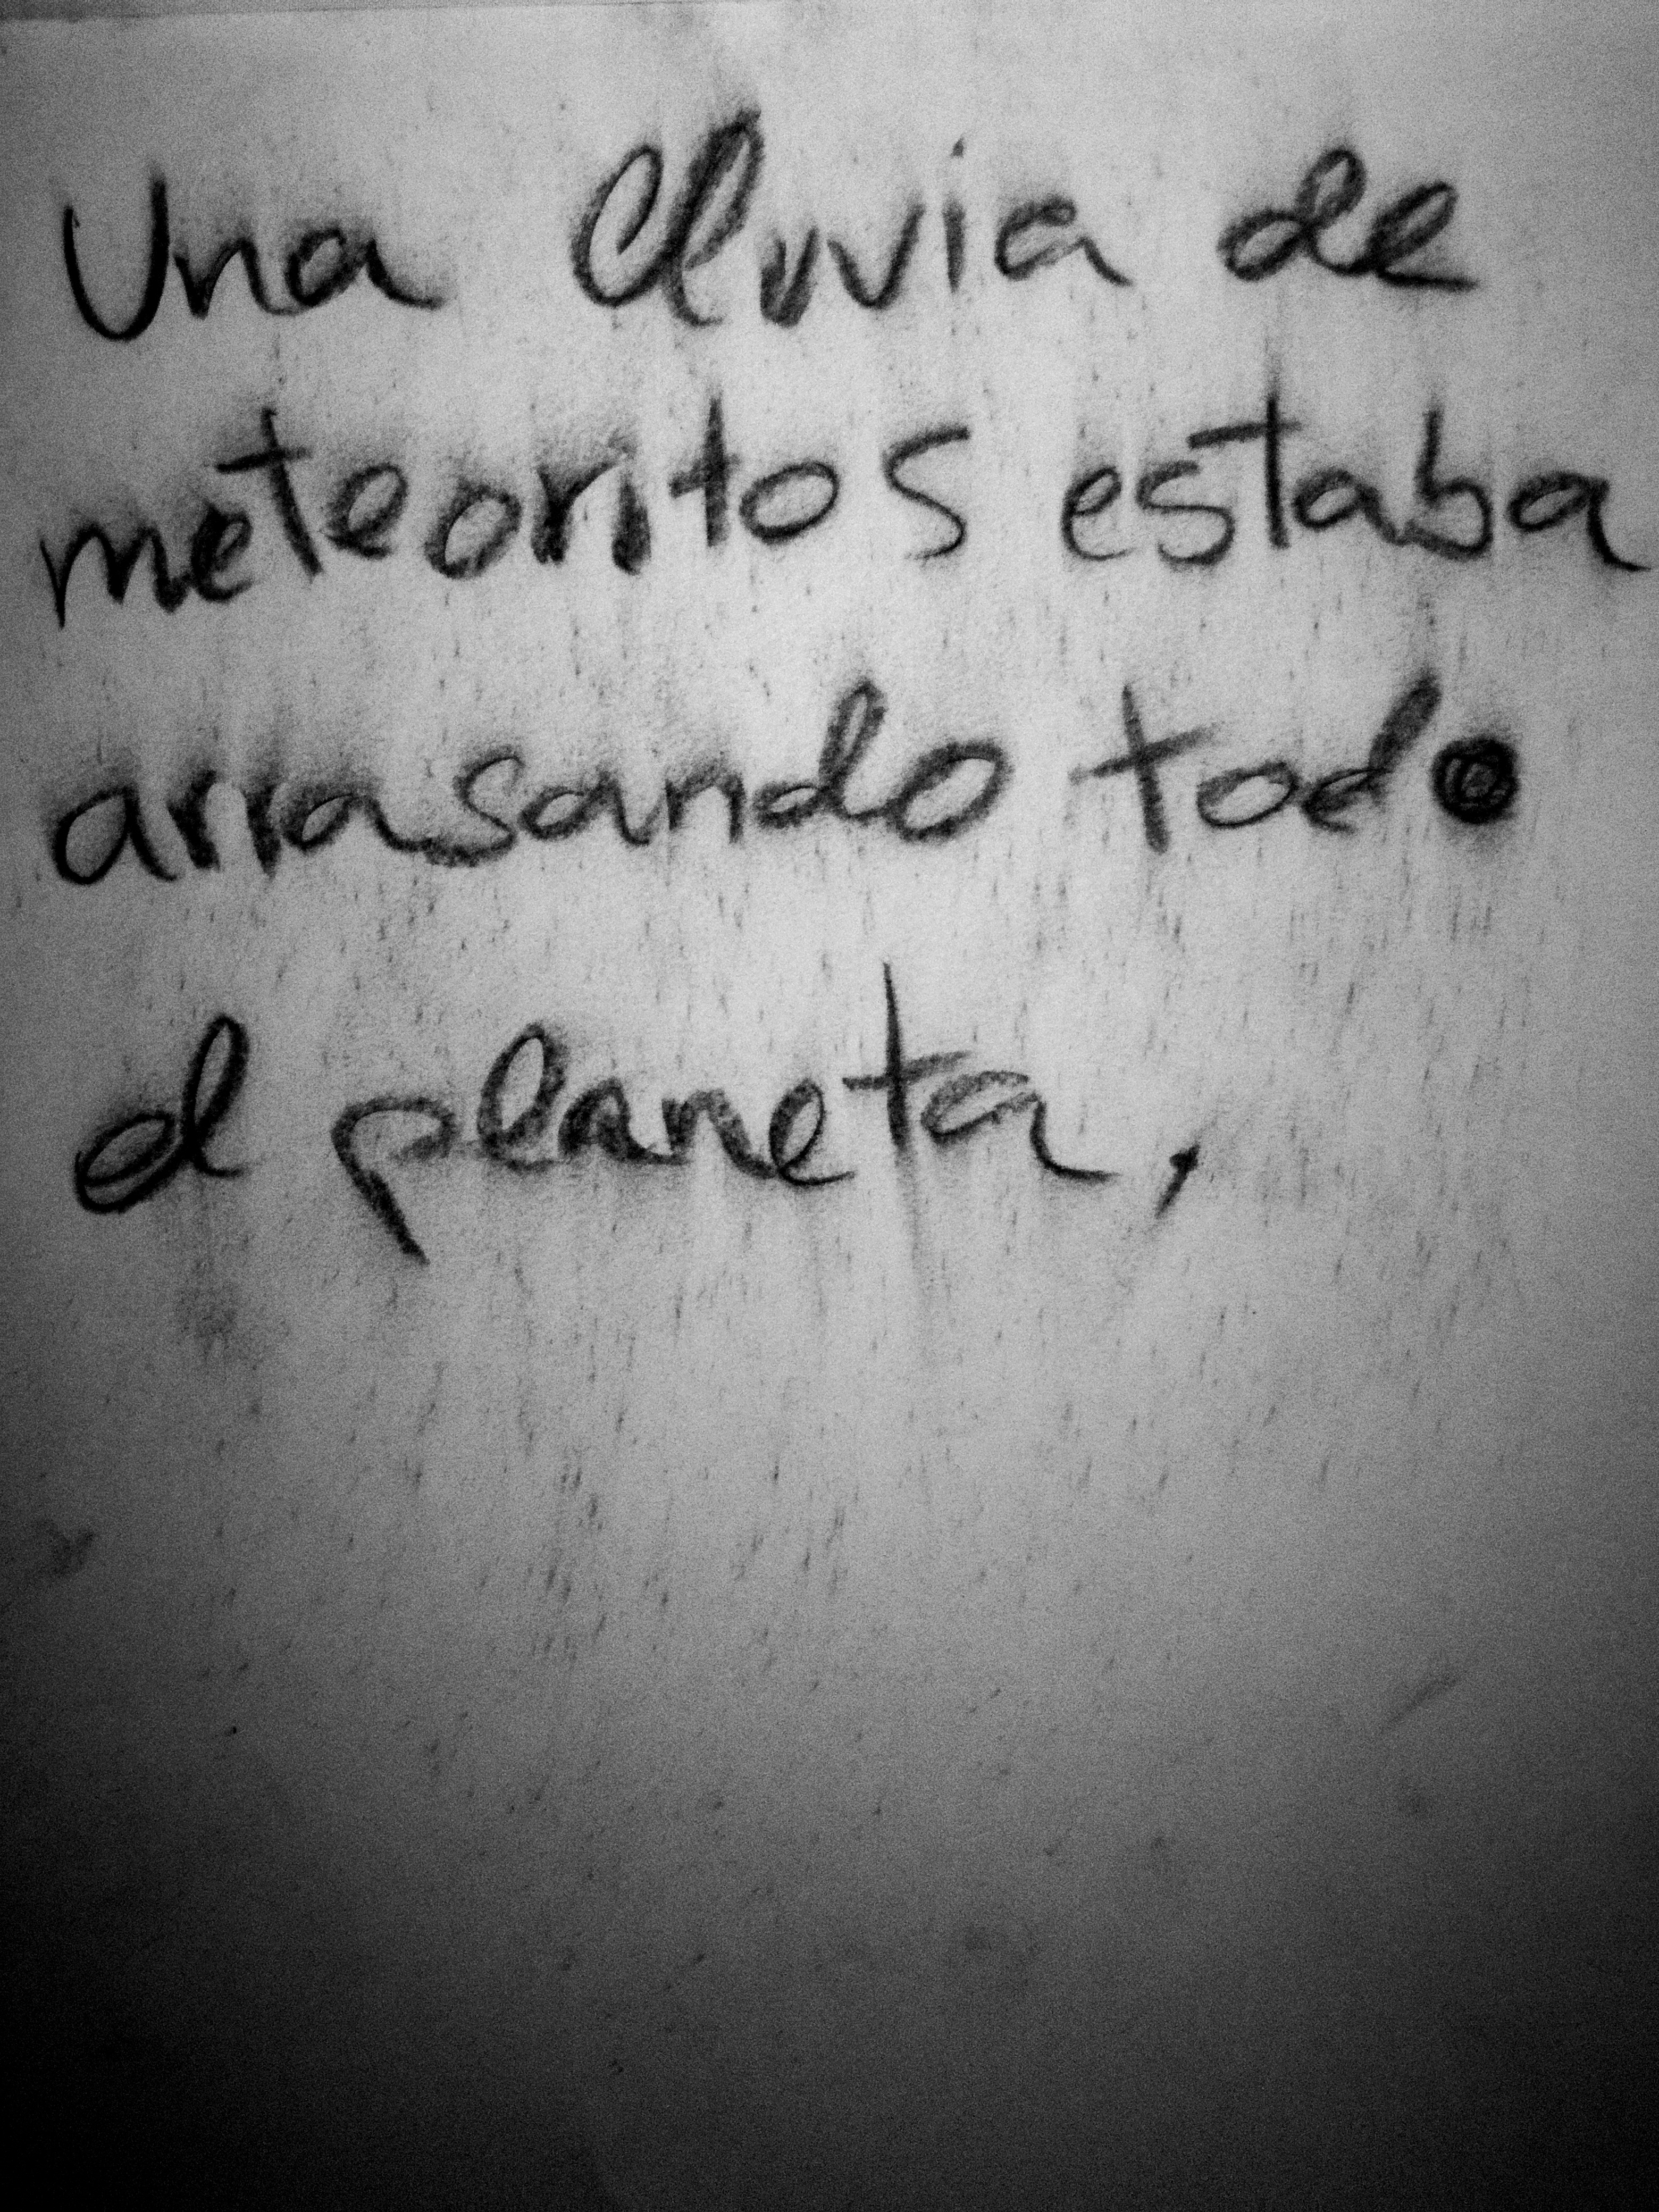 Una lluvia de
meteoritos estaba
arrasando todo
el planeta,